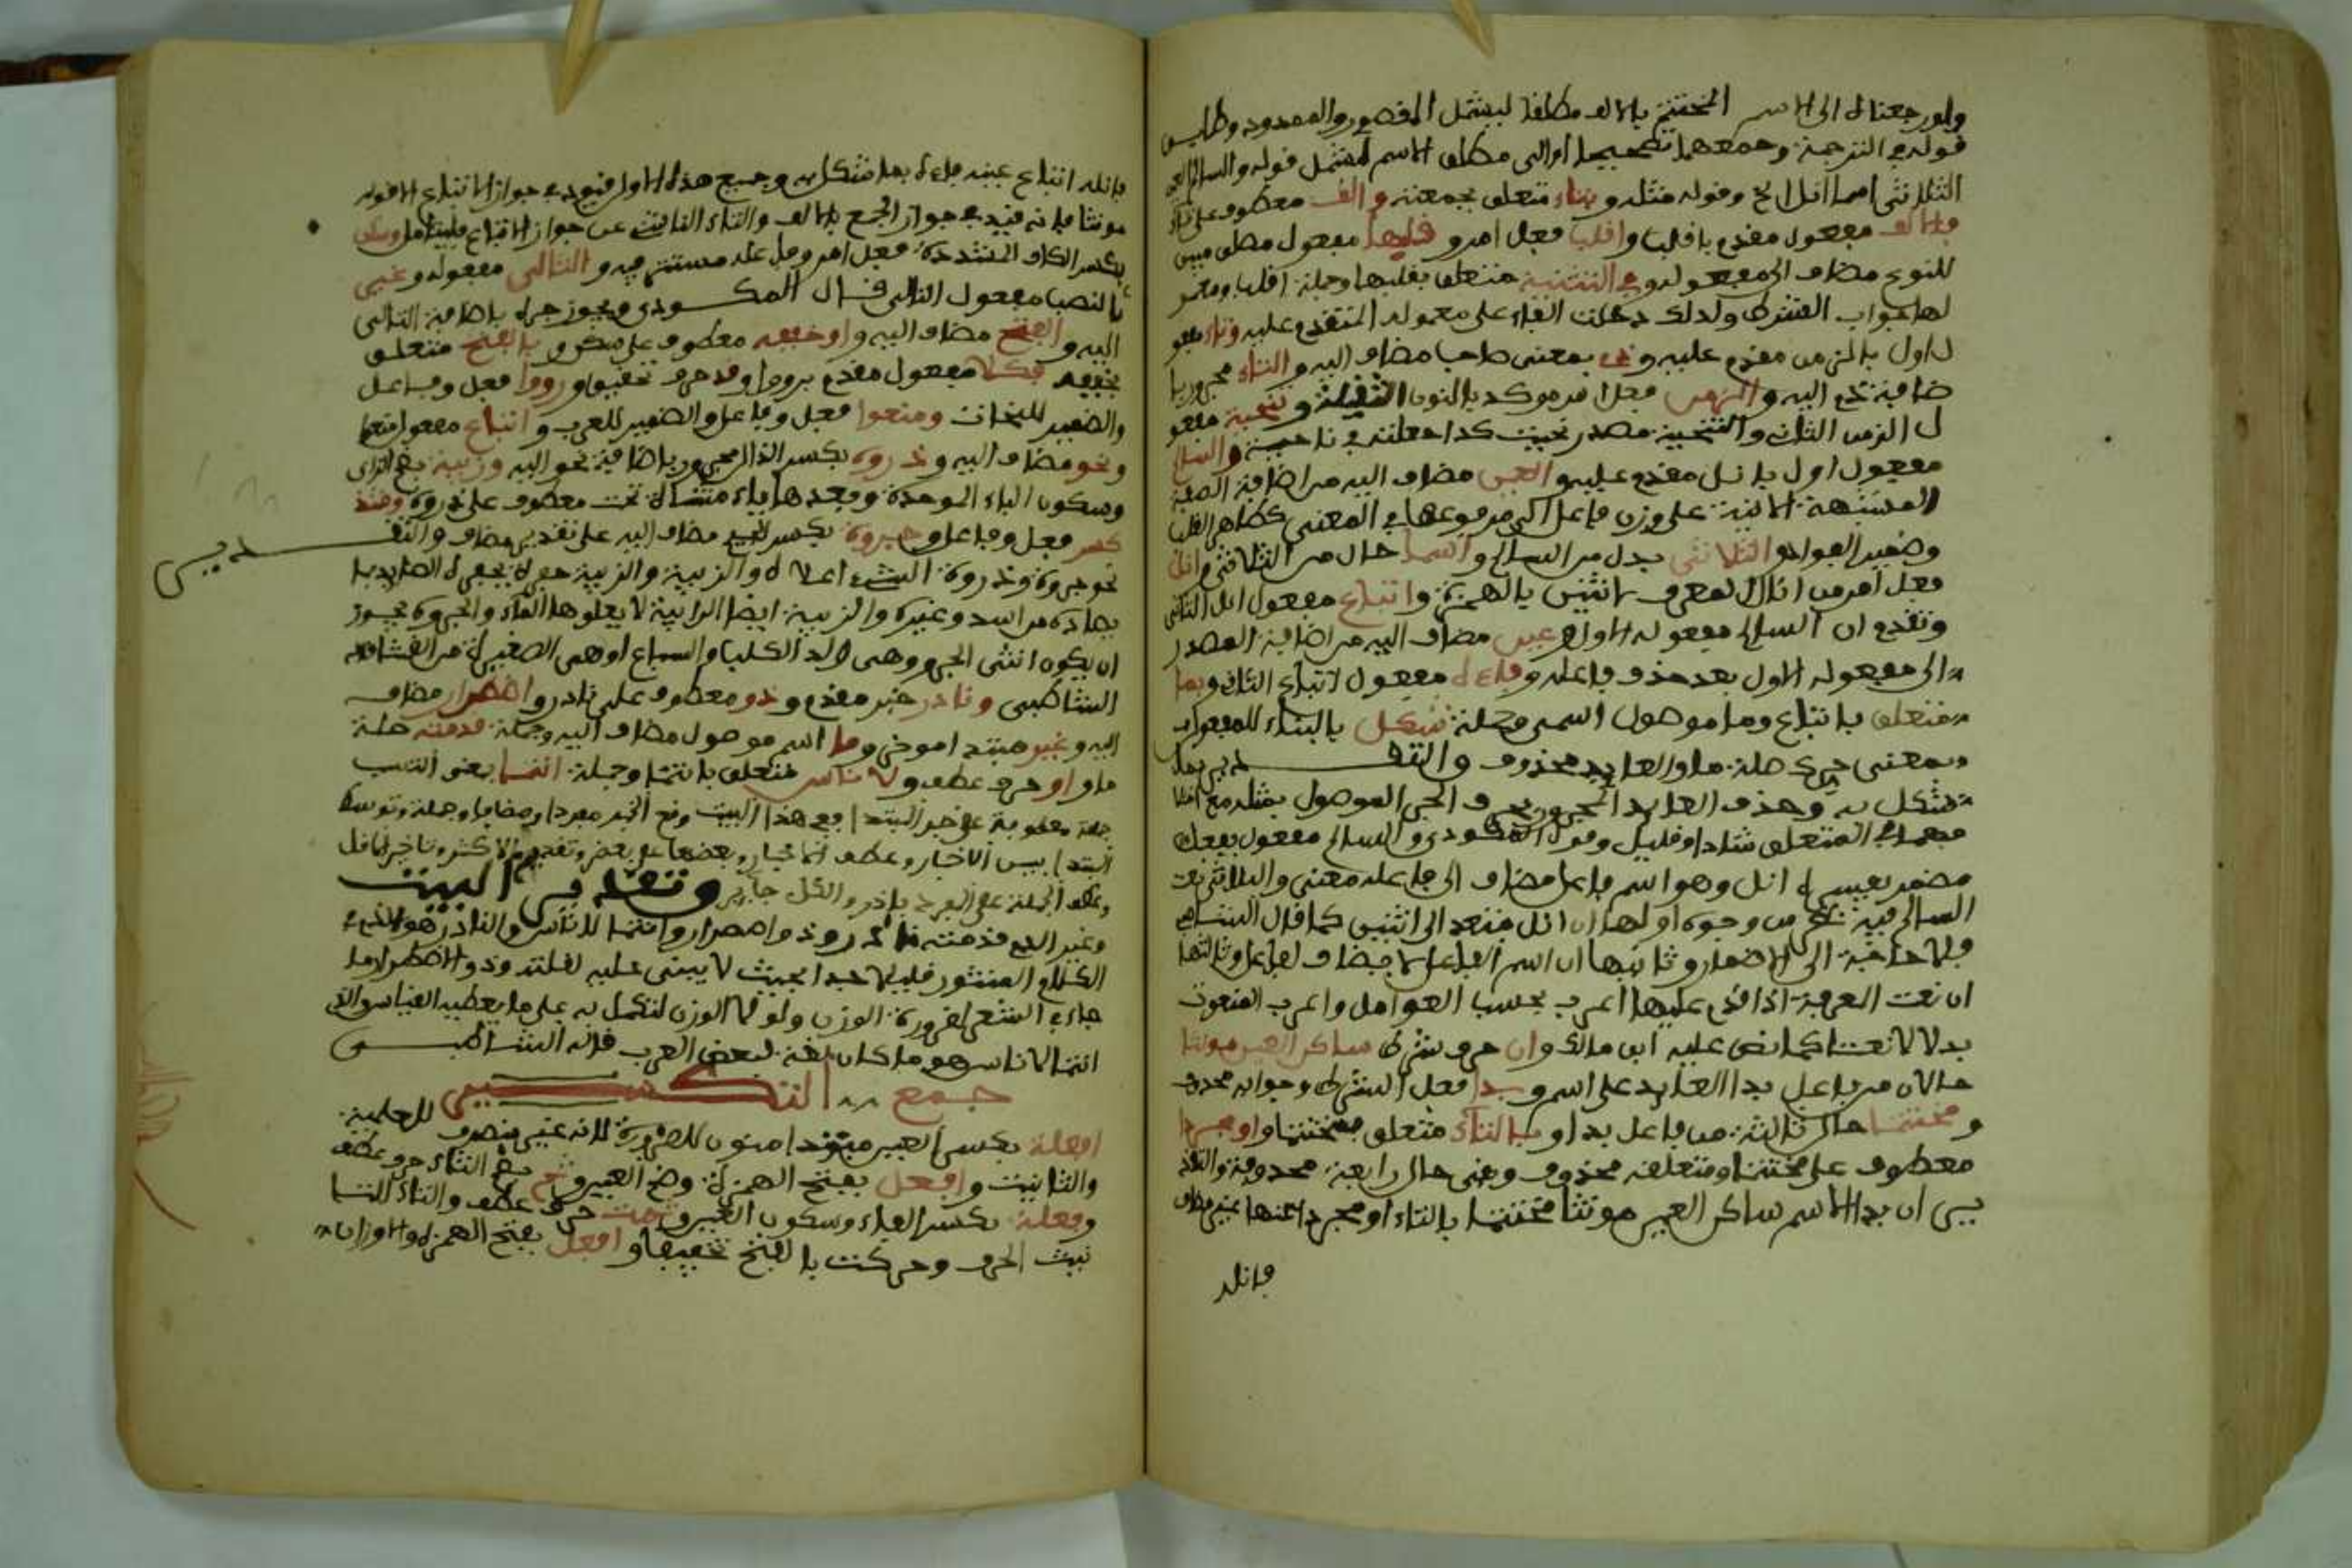 ولو رجعناه الى الاسم المختتم بالالف مطلقا ليشمل المقصور والممدود وطابق
قوله في الترجمة وجمعهما تصحيحا او الى مطلق الاسم ليشمل قوله والسالم العين
الثلاثي اسما انل الخ وقوله مثله وبتاء متعلق بجمعته والف معطوف على تاء
فالالف مفعول مقدم باقلب واقلب فعل امر وقلبها مفعول مطلق مبين
للنوع مضاف الى مفعوله وفي التثنية متعلق بقلبها وجملة اقلب ومعمو
لها جواب الشرط ولذلك دخلت الفاء على معموله المتقدم عليه وتاء مفعو
ل اول بالزمن مقدم عليه وذي بمعنى صاحب مضاف اليه والتاء مجرور با
ضافة ذي اليه والزمن فعل امر موكد بالنون الثقيلة وتنحية مفعو
ل الزمن الثاني والتنحية مصدر نحيت كذا جعلته في ناحية والسالم
مفعول اول بانل مقدم عليه والعين مضاف اليه من اضافة الصفة
المشبهة الاتية على وزن فاعل الى مرفوعها في المعنى كطاهر القلب
وضمير العوامل والثلاثي بدل من السالم واسما حال من الثلاثي وانل
فعل امر من انال المعرف باثنين بالهمزة واتباع مفعول انل الثاني
وتقدم ان السالم مفعوله الاول وعين مضاف اليه من اضافة المصدر
الى مفعوله الاول بعد حذف فاعله وفاءه مفعول لاتباع الثاني وبما
متعلق باتباع وما موصول اسمي وجملة شكل بالبناء للمفعول
بمعنى حرك صلة ما والعايد محذوف والتقدير بما
شكل به وحذف العايد المجرور بحرف الجر الموصول بمثله مع اختلا
ف المتعلق شاذ او قليل وقول المكودي والسالم مفعول بفعل
مضمر يفسره انل وهو اسم فاعل مضاف الى فاعله معنى والثلاثي نعت
السالم فيه نظر من وجوه اولها ان انل متعد الى اثنين كما قال الشاطبي
فلا حاجة الى الاضمار وثانيها ان اسم الفاعل لا يضاف لفاعله وثالثها
ان نعت المعرفة اذا قدم عليها اعرب بحسب العوامل واعرب المنعوت
بدلا لا نعتا كما نص عليه ابن مالك وان حرف شرط ساكن العين مونثا
حالان من فاعل بدا العايد على اسم وبدا فعل الشرط وجوابه محذوف
ومختتما حال ثالثة من فاعل بدا وبالتاء متعلق بمختتما او مجردا
معطوف على مختتما ومتعلقه محذوف وهي حال رابعة محذوفة والتقد
ير ان بدا الاسم ساكن العين مونثا مختتما بالتاء او مجردا عنها
فانله
فانله اتباع عينه فاءه بما شكل به وجميع هذه الاول قيود في جواز الاتباع الا قوله
مونثا فانه قيد في جواز الجمع بالالف والتاء الناشئ عن جواز الاتباع فليتامل وسكن
بكسر الكاف المشددة فعل امر وفاعله مستتر فيه والتالي مفعوله وغير
بالنصب مفعول التالي قال المكودي ويجوز جره باضافة التالي
اليه والفتح مضاف اليه او خففه معطوف على سكن وبالفتح متعلق
بخففه فكلا مفعول مقدم برووا وقد حرف تحقيق ورووا فعل وفاعل
والضمير للنحات ومنعوا فعل وفاعل والضمير للعرب واتباع مفعول منعوا
ونحو مضاف اليه وذروه بكسر الذال مجرور باضافة نحو اليه وزبية بضم الزاي
وسكون الباء الموحدة وبعدها ياء مثناة تحت معطوف على ذروة وشذ
كسر فعل وفاعل وجروة بكسر الجيم مضاف اليه على تقدير مضاف والتقدير
نحو جروة وذروة الشيء اعلاه والزبية والزبية حفرة يحفرها الصايد
يصاد من اسد وغيره والزبية ايضا الرابية لا يعلوها الماء والجروة يجوز
ان يكون انثى الجرو وهي ولد الكلب والسباع او هي الصغيرة من القثاء قاله
الشاطبي ونادر خبر مقدم وذو معطوف على نادر واضطرار مضاف
اليه وغير مبتدا موخر وما اسم موصول مضاف اليه وجملة قدمته صلة
ما واو حرف عطف ولاناس متعلق بانتما وجملة انتما بمعنى انتسب
جملة معطوفة على خبر المبتدا ففي هذا البيت وقع الخبر مفردا ومضافا وجملة وتوسط
المبتدا بين الاخبار وعطف الاخبار بعضها على بعض وتقديم الاكثر وتاخير الاقل
وعطف الجملة على المفرد نادر والكل جايز وتقدير البيت
وغير الذي قدمته نادر وذو اضطرار وانتما لاناس والنادر هو الذي في
الكلام المنثور قليلا جدا بحيث لا يبنى عليه لقلته وذو الاضطرار ما
جاء في الشعر لضرورة الوزن ولولا الوزن لتكلم به على ما يعطيه القياس والذي
انتما لاناس هو ما كان لغة لبعض العرب قاله الشاطبي
جمع التكسير
افعلة بكسر العين مبتدا منون للضرورة لانه غير منصرف للعلمية
والتانيث وافعل بفتح الهمزة وضم العين وثم بضم الثاء حرف عطف
وفعلة بكسر الفاء وسكون العين وثمت حرف عطف والتاء لتا
نيث الحرف وحركت بالفتح تخفيفا وافعل بفتح الهمزة والاوزان